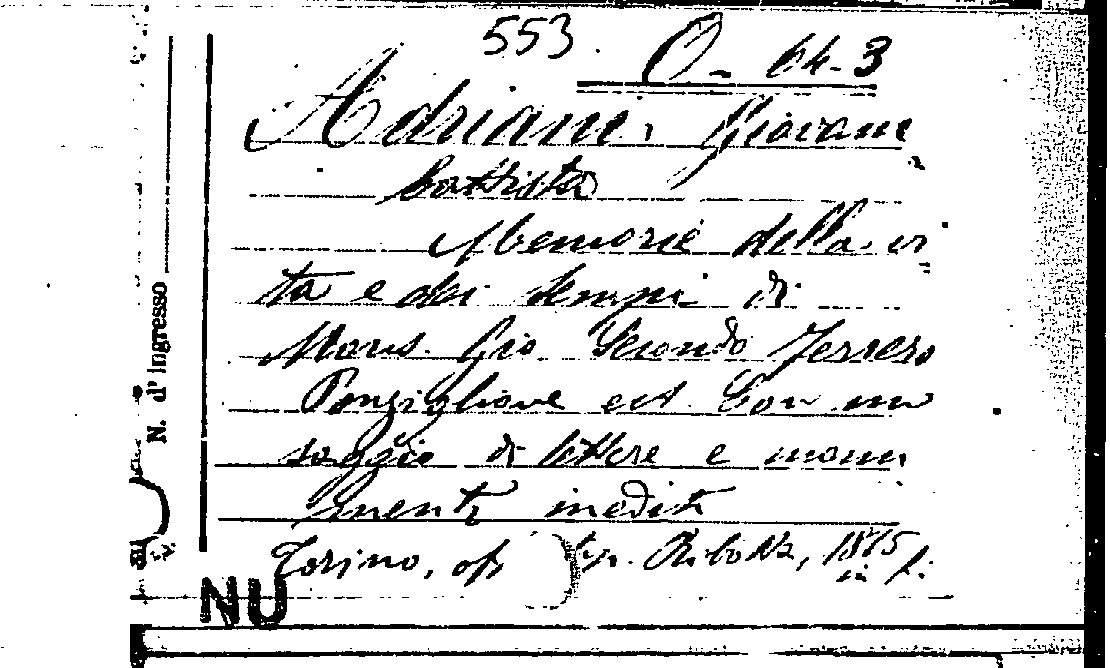 553. O- 64-3
Adriani, Giovan
battista
Memorie della vi
ta e dei tempi di
Mons. Gio Secondo Ferrero
Ponziglione est. Con un
saggio di lettere e monu
menti inediti
Torino, typ. Ribotta, 1875
in f.
N. d'Ingresso
NU